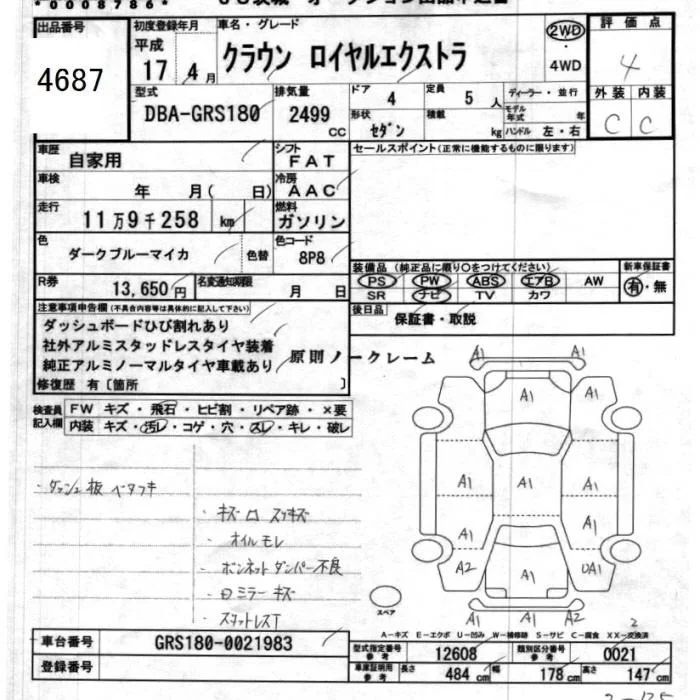 *0008786*
出品番号
4687
初度登録年月
平成
17 4月
車名・グレード
クラウン ロイヤルエクストラ
2WD
・
4WD
評価点
4
外装 内装
C C
型式
DBA-GRS180
排気量
2499
CC
ドア
4
定員
5 人
形状
セダン
積載
kg
ディーラー・並行
モデル年式 年
ハンドル 左・右
車歴
自家用
シフト
FAT
車検
年 月( 日)
冷房
AAC
走行
11万9千258 km
燃料
ガソリン
色
ダークブルーマイカ
色替
色コード
8P8
R券
13,650円
名変通知期限
月 日
セールスポイント(正常に機能するものに限ります)
装備品(純正品に限り○をつけてください)
PS PW ABS エアB AW
SR ナビ TV カワ
新車保証書
有・無
後日品
保証書・取説
注意事項申告欄(不具合内容等は具体的に記入して下さい)
ダッシュボードひび割れあり
社外アルミスタッドレスタイヤ装着
純正アルミノーマルタイヤ車載あり
修復歴 有〔箇所 〕
原則ノークレーム
検査員記入欄
FW キズ・飛石・ヒビ割・リペア跡・×要
内装 キズ・汚レ・コゲ・穴・スレ・キレ・破レ
・ダッシュ板 ベタツキ
・キズ ロ スリキズ
・オイルモレ
・ボンネットダンパー不良
・ロミラーキズ
・スタットレスT
A1 A1
A1
A1 A1
A1 A1 A1
A1 A1
A2 A1 UA1
A1 A1 A2
スペア
A-キズ E-エクボ U-凹み W-補修跡 S-サビ C-腐食 XX-交換済
車台番号
GRS180-0021983
登録番号
型式指定番号 参考
12608
類別区分番号 参考
0021
車庫証明用 参考
長さ 484 cm 幅 178 cm 高さ 147 cm